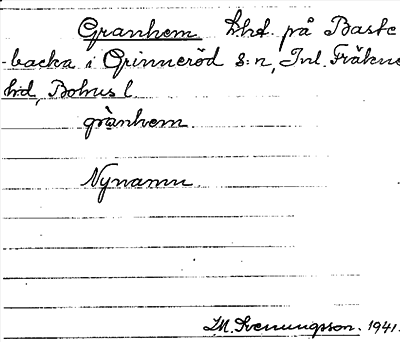 Granhem lht. på Baste
-backa i Grinneröd s:n, Inl. Fräkne
hd, Bohus l.
grànhem.
Nynamn.
I.M. Svenungsson. 1941.